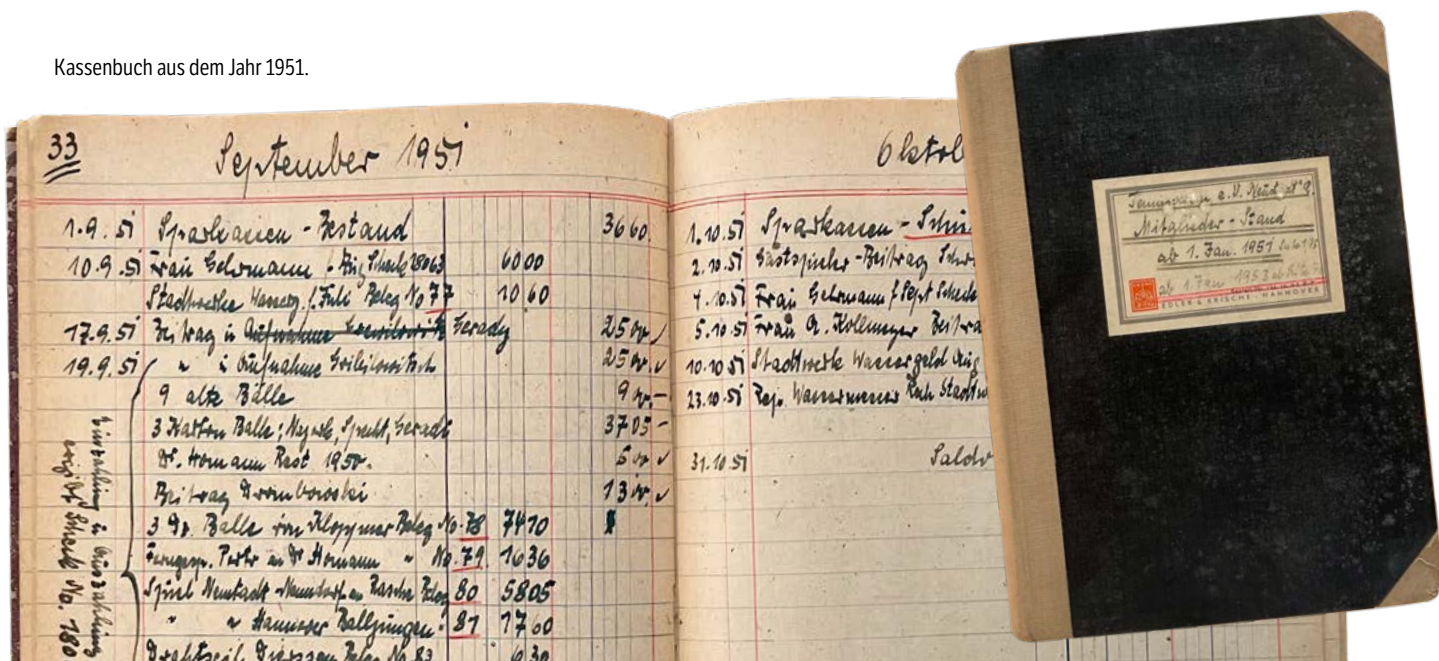 Kassenbuch aus dem Jahr 1951.
33
September 1951
1.9.51 Sparkassen - Bestand 3660.
10.9.51 Frau Gehrmann f. Aug. Scheck 6000
Stadtwerke Wasserg. f. Juli Beleg No 77 1060
17.9.51 Beitrag u. Aufnahme Gerady 2500 ✓
19.9.51 " u Aufnahme 2500 ✓
9 alte Bälle 900 -
3 Karton Bälle; Gerady 3705 -
Dr. Homann Rest 1950. 500 ✓
Beitrag Drombowski 1300 ✓
3 Bälle von Beleg No. 78 7410
Ferngespr. Porto an Dr. Homann " No. 79 1636
Spiel Neustadt - Nenndorf an Rasche Beleg 80 5805
" " Hannover Balljungen 81 1700
Drahtseil Beleg No 83 630
Einzahlung u. Auszahlung
Scheck No.
Oktob
1.10.51 Sparkassen -
2.10.51 Gastspieler - Beitrag
4.10.51 Frau Gehrmann f Sept
5.10.51 Frau A. Kollmeyer
10.10.51 Stadtwerke Wassergeld Aug
23.10.51 Rep. Wassermesser
31.10.51 Saldo
e.V.
Mitglieder - Stand
ab 1. Jan. 1951
ab 1 Jan 1953
EDLER & KRISCHE · HANNOVER